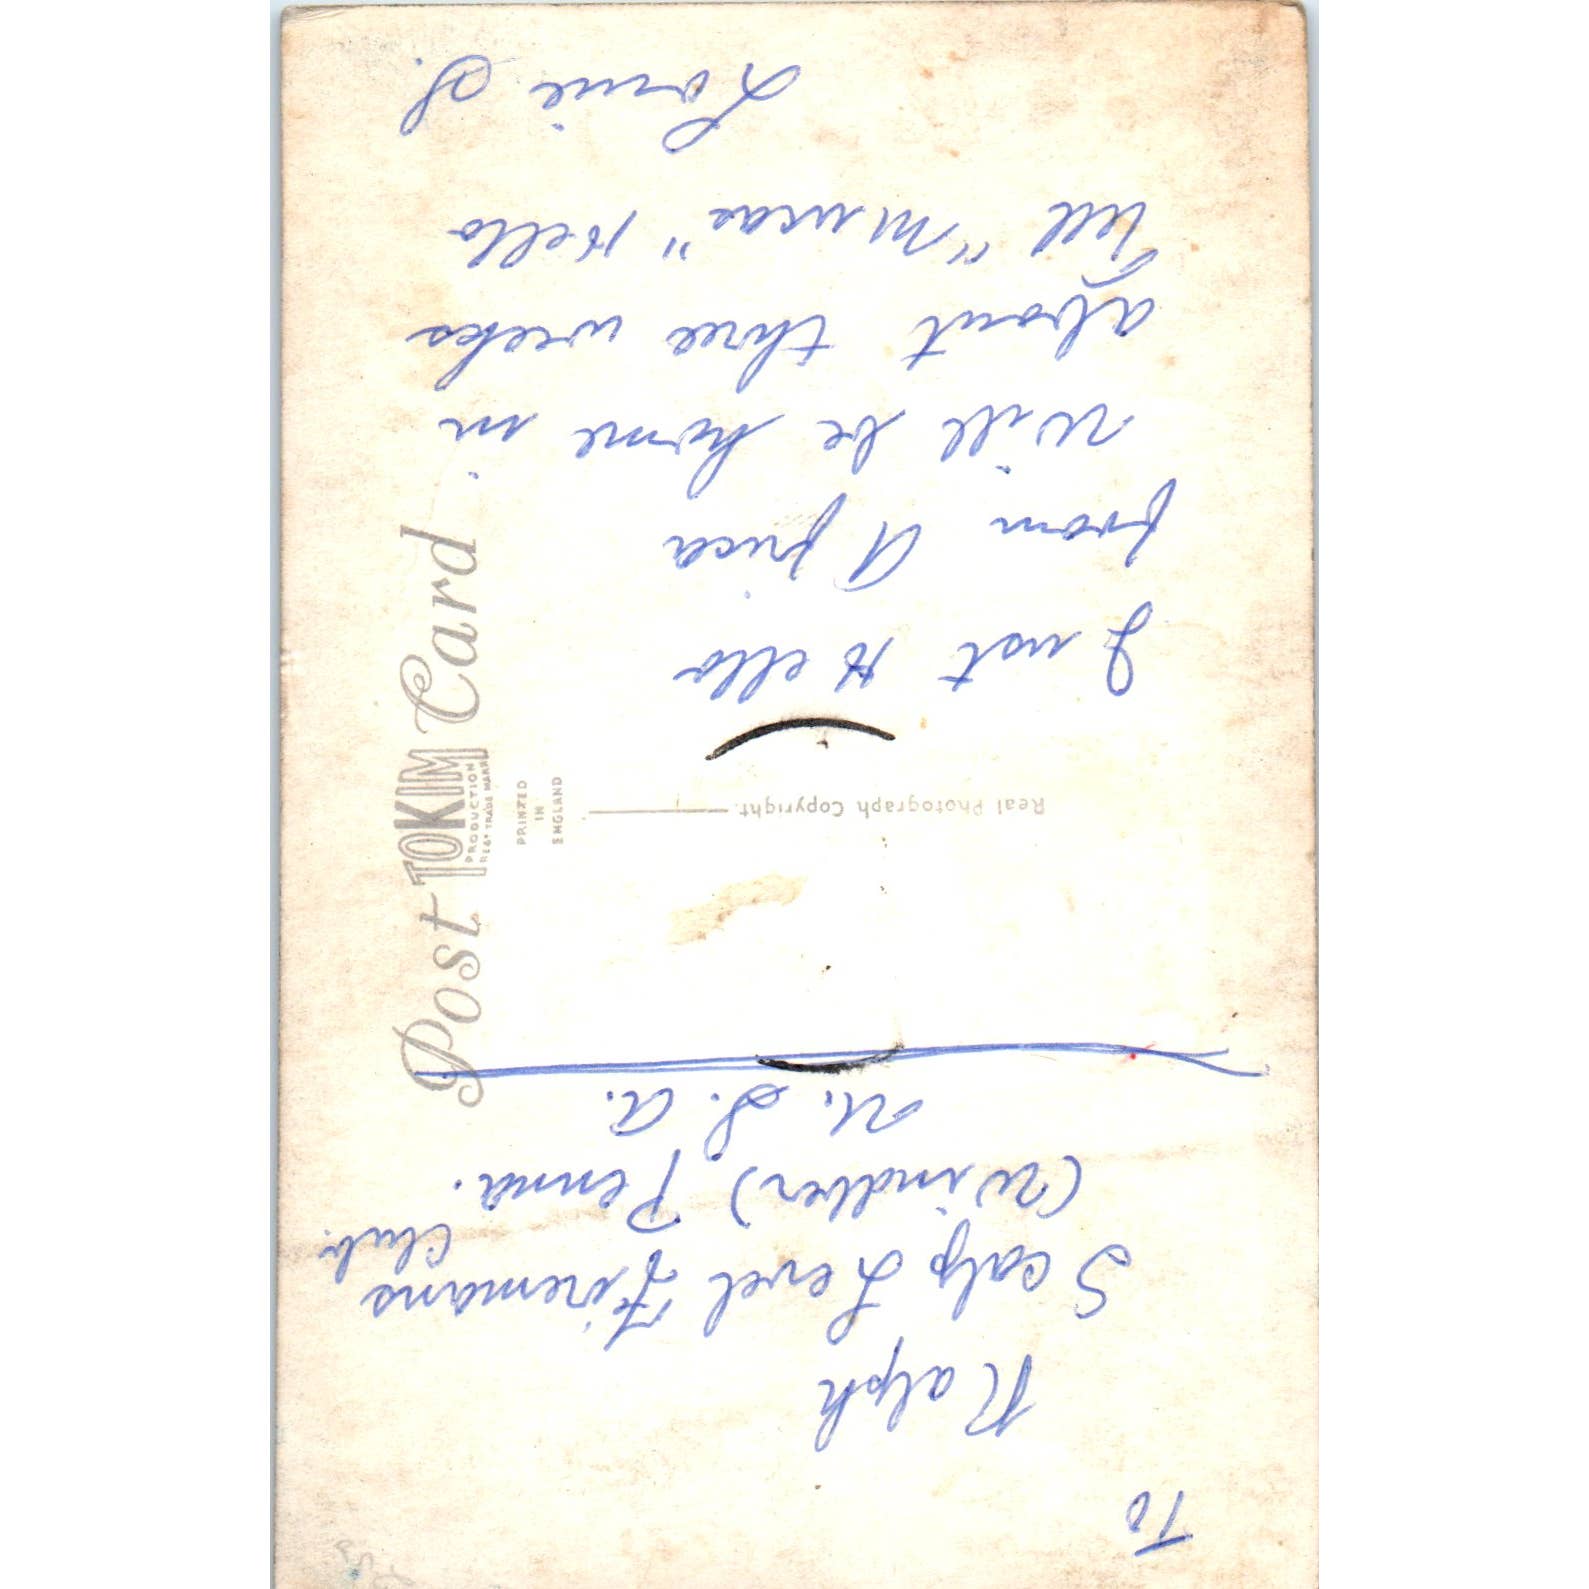 To
Ralph
Scalp Level Firemans
Club.
(Windber) Penna.
U. S. A.
Real Photograph Copyright.
Just Hello
from Africa
Will be home in
about three weeks
Tell "Mucas" Hello
Lorie S.
Post Card
TOKIM
PRODUCTION
REGT TRADE MARK
PRINTED
IN
ENGLAND